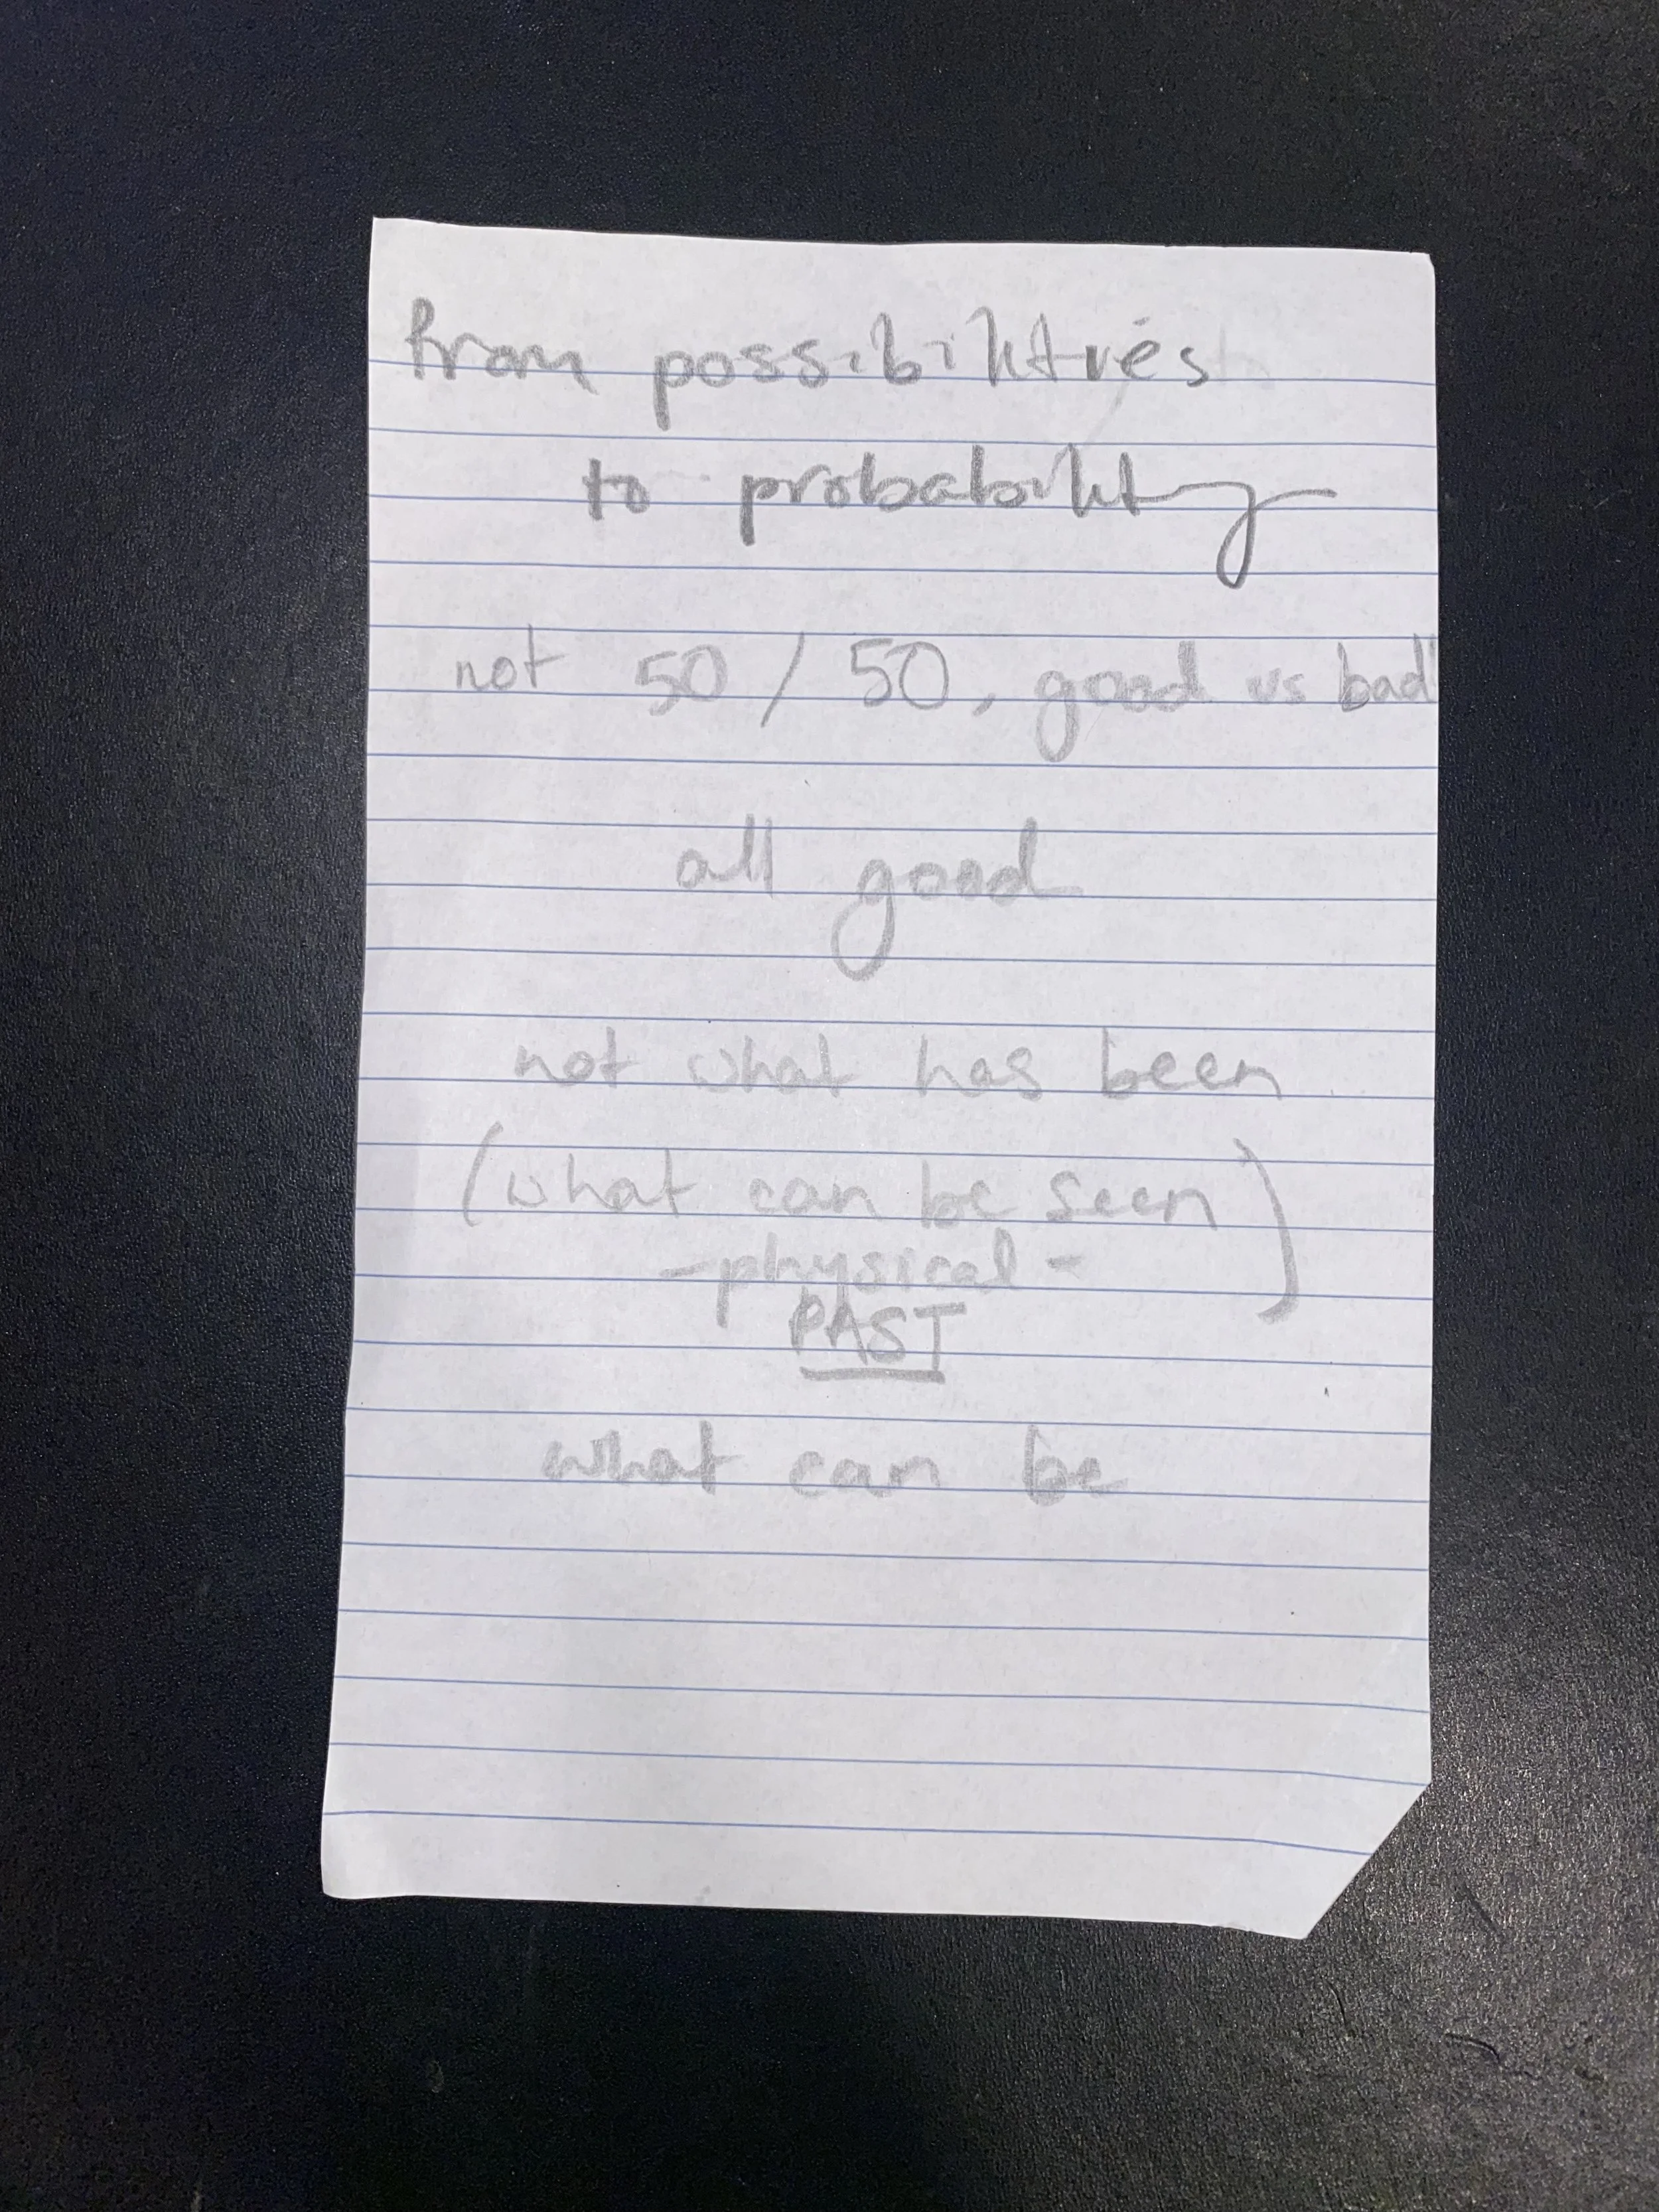 from possibilities
to probability
not 50/50, good vs bad
all good
not what has been
(what can be seen)
-physical-
PAST
what can be